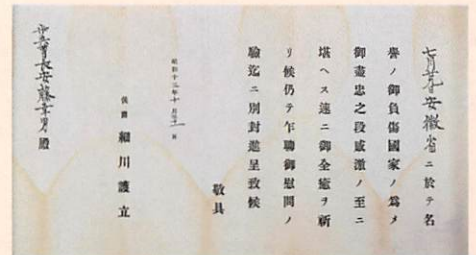 七月廿九安徽省ニ於テ名
譽ノ御負傷國家ノ爲メ
御盡忠之段感激ノ至ニ
堪ヘス速ニ御全癒ヲ祈
リ候仍テ乍聊御慰問ノ
驗迄ニ別封進呈致候
敬具
昭和十三年十月三十一日
侯爵 細川護立
安藤幸男殿